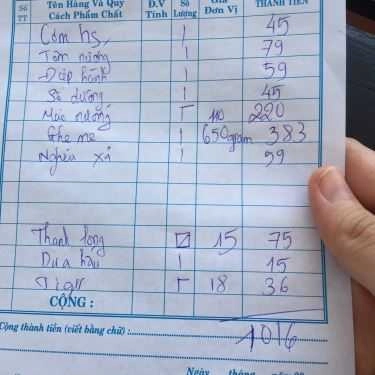 Số TT Tên Hàng Và Quy Cách Phẩm Chất Đ.V Tính Số Lượng Giá Đơn Vị THÀNH TIỀN
Cơm hs 1 45
Tôm nướng 1 79
1 59
Sò dương 1 45
Mực nướng 110 220
Ghe me 1 650gram 383
Nghêu xả 1 59
Thanh long 15 75
Dưa hấu 1 15
Tiger 18 36
CỘNG : 1016
Cộng thành tiền (viết bằng chữ) :
Ngày tháng năm 20